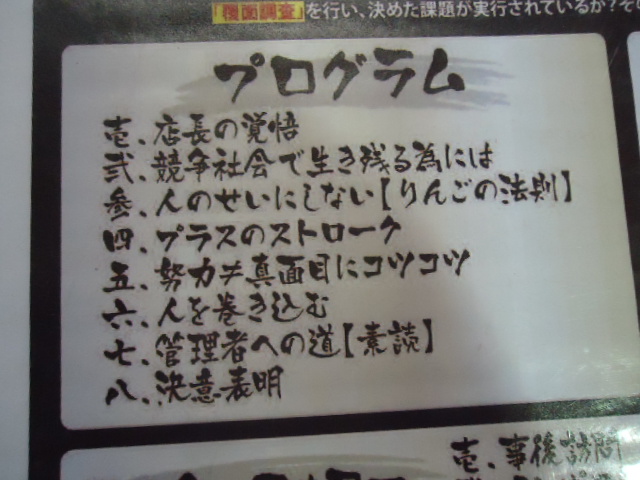 「覆面調査」を行い、決めた課題が実行されているか?そ
プログラム
壱、店長の覚悟
弐、競争社会で生き残る為には
参、人のせいにしない【りんごの法則】
四、プラスのストローク
五、努力≠真面目にコツコツ
六、人を巻き込む
七、管理者への道【素読】
八、決意表明
壱、事後訪問